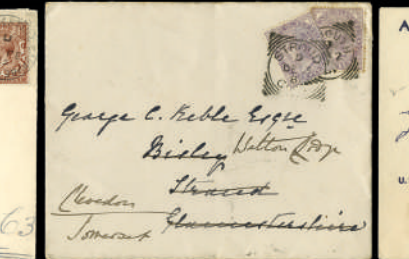 STROUD
George C. Keble Esqre
Bisley Walton Lodge
Stroud
Clevedon Gloucestershire
Somerset
63
A
U.